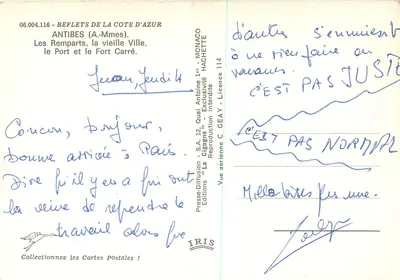 06.004.116 - REFLETS DE LA COTE D'AZUR
ANTIBES (A.-Mmes).
Les Remparts, la vieille Ville,
le Port et le Fort Carré.
Jeudi 4
bonjour,
bonne arrivée à Paris.
Dire qu'il y en a qui ont
la veine de reprendre le
travail alors que
Collectionnez les Cartes Postales !
IRIS
Presse-Diffusion - S.A. 12, Quai Antoine 1er - MONACO
Editions "La Cigogne" - Exclusivité HACHETTE
Reproduction interdite
Vue aérienne C. GEAY - Licence 114
d'autres s'ennuient
à ne rien faire en
vacances.
C'EST PAS JUSTE
C'EST PAS NORMAL
Mille bises